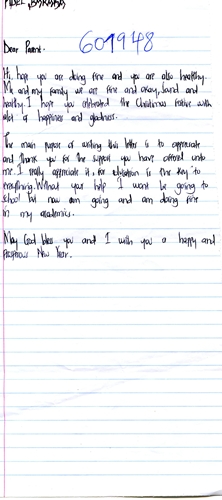 Dear Parent. 601948
Hi, hope you are doing fine and you are also healthy.
Me and my family we are fine and okay, sound and
healthy. I hope you celebrated the Christmas festive with
alot of happiness and gladness.
The main purpose of writing this letter is to appreciate
and thank you for the support you have offered unto
me. I really appreciate it, for education is the key to
everything. Without your help I wont be going to
school but now am going and am doing fine
in my academics.
May God bless you and I wish you a happy and
prosperous New Year.